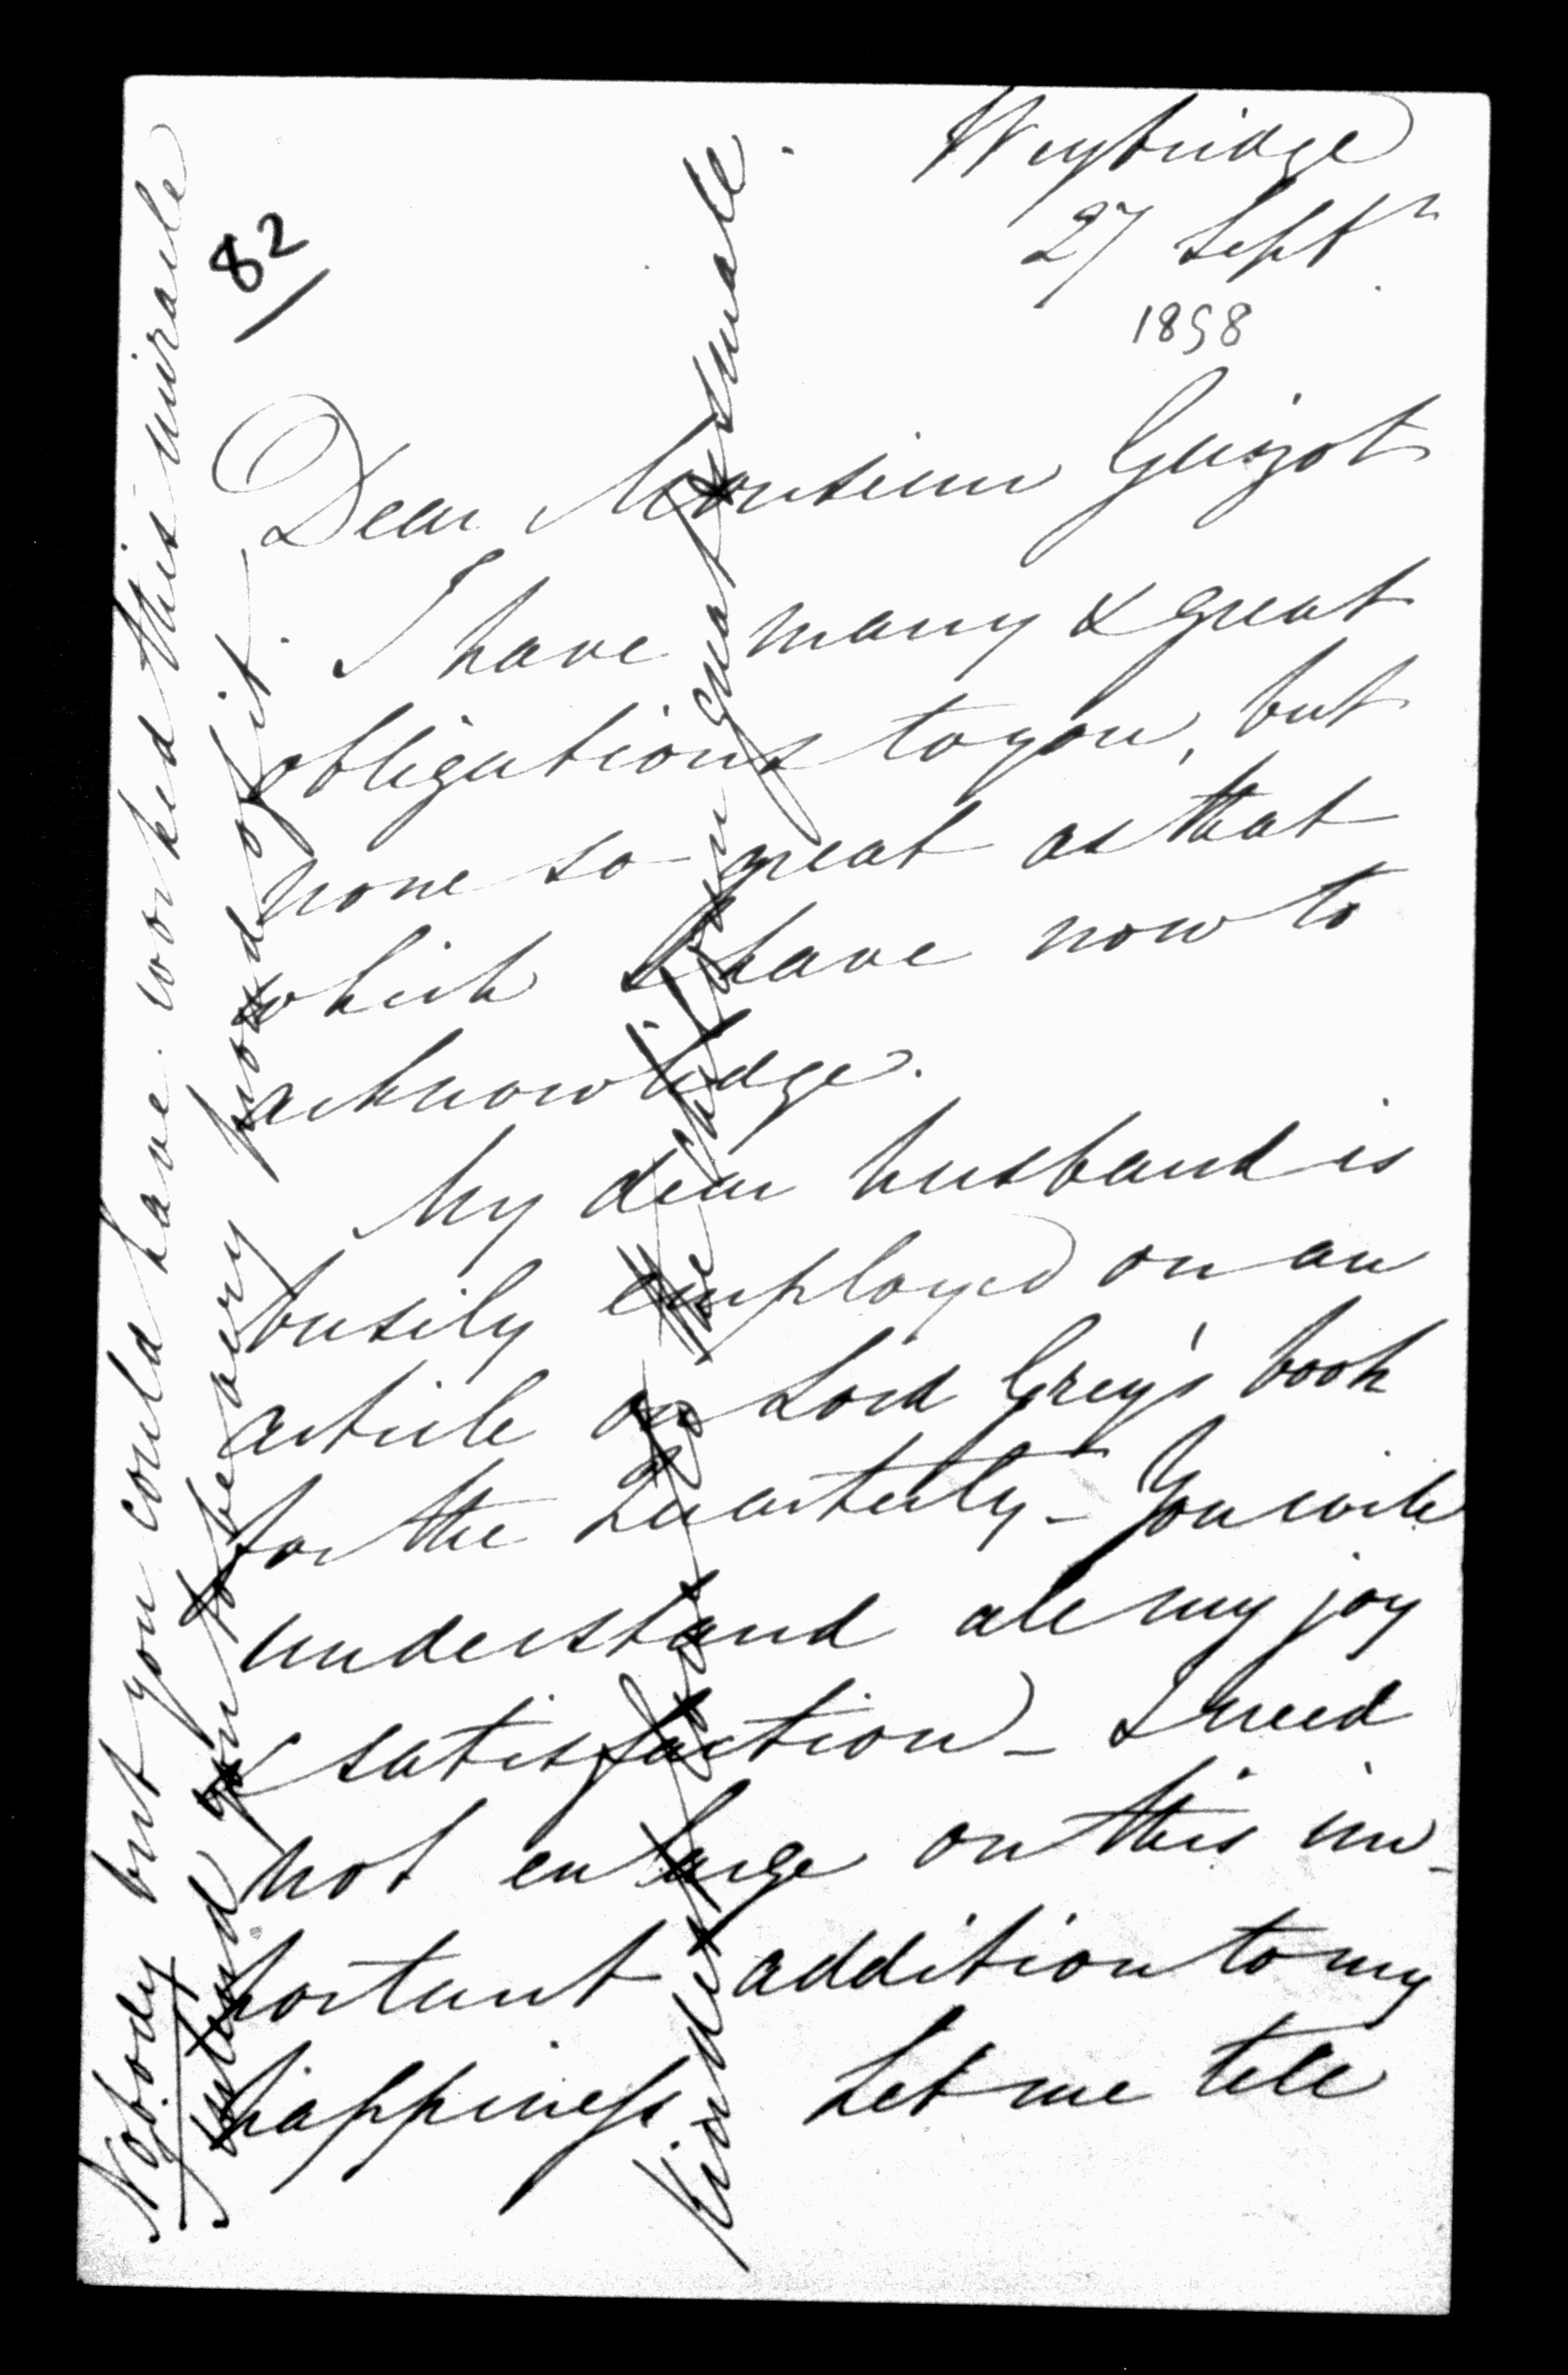 Weybridge
27 Septr
1858
82
Dear Monsieur Guizot
I have many & great
obligations to you, but
none so great as that
which I have now to
acknowledge.
My dear husband is
busily employed on an
article on Lord Grey's book
for the Quarterly - You will
understand all my joy
& satisfaction - I need
not enlarge on this im-
portant addition to my
happiness Let me tell
Nobody but you could have worked this miracle
intend you to be very proud of it.
Kindest to all the children great & small.